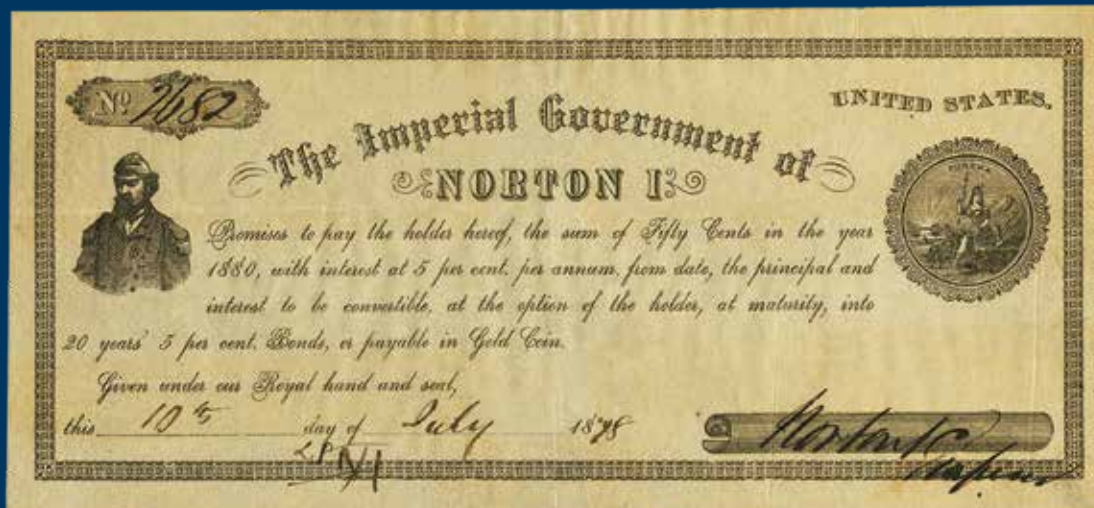 No 2682
UNITED STATES.
The Imperial Government of
NORTON I
Promises to pay the holder hereof, the sum of Fifty Cents in the year
1880, with interest at 5 per cent. per annum, from date, the principal and
interest to be convertible, at the option of the holder, at maturity, into
20 years' 5 per cent. Bonds, or payable in Gold Coin.
Given under our Royal hand and seal,
this 10th day of July 1878
Norton I